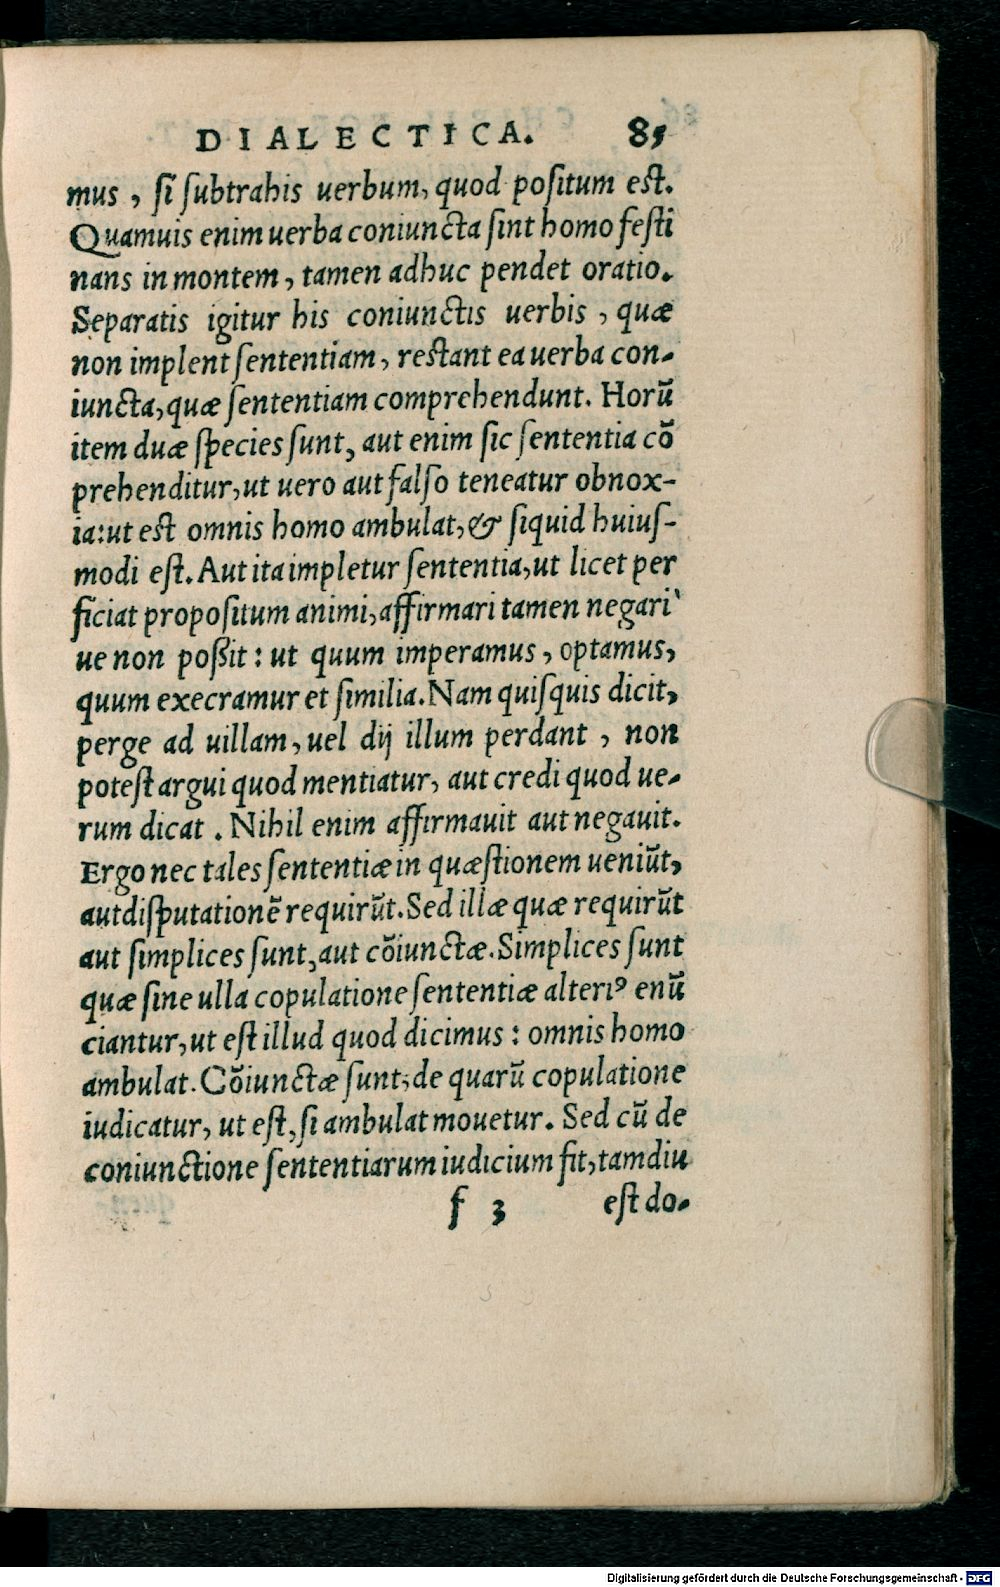 DIALECTICA. 85
mus, si subtrahis uerbum, quod positum est.
Quamuis enim uerba coniuncta sint homo festi
nans in montem, tamen adhuc pendet oratio.
Separatis igitur his coniunctis uerbis, quæ
non implent sententiam, restant ea uerba con-
iuncta, quæ sententiam comprehendunt. Horū
item duæ species sunt, aut enim sic sententia cō
prehenditur, ut uero aut falso teneatur obnox-
ia: ut est omnis homo ambulat, & siquid huius-
modi est. Aut ita impletur sententia, ut licet per
ficiat propositum animi, affirmari tamen negari
ue non poßit: ut quum imperamus, optamus,
quum execramur et similia. Nam quisquis dicit,
perge ad uillam, uel dij illum perdant, non
potest argui quod mentiatur, aut credi quod ue-
rum dicat. Nihil enim affirmauit aut negauit.
Ergo nec tales sententiæ in quæstionem ueniūt,
aut disputationē requirūt. Sed illæ quæ requirūt
aut simplices sunt, aut cōiunctæ. Simplices sunt
quæ sine ulla copulatione sententiæ alteriꝰ enū
ciantur, ut est illud quod dicimus: omnis homo
ambulat. Cōiunctæ sunt, de quarū copulatione
iudicatur, ut est, si ambulat mouetur. Sed cū de
coniunctione sententiarum iudicium fit, tamdiu
f 3 est do-
Digitalisierung gefördert durch die Deutsche Forschungsgemeinschaft - DFG